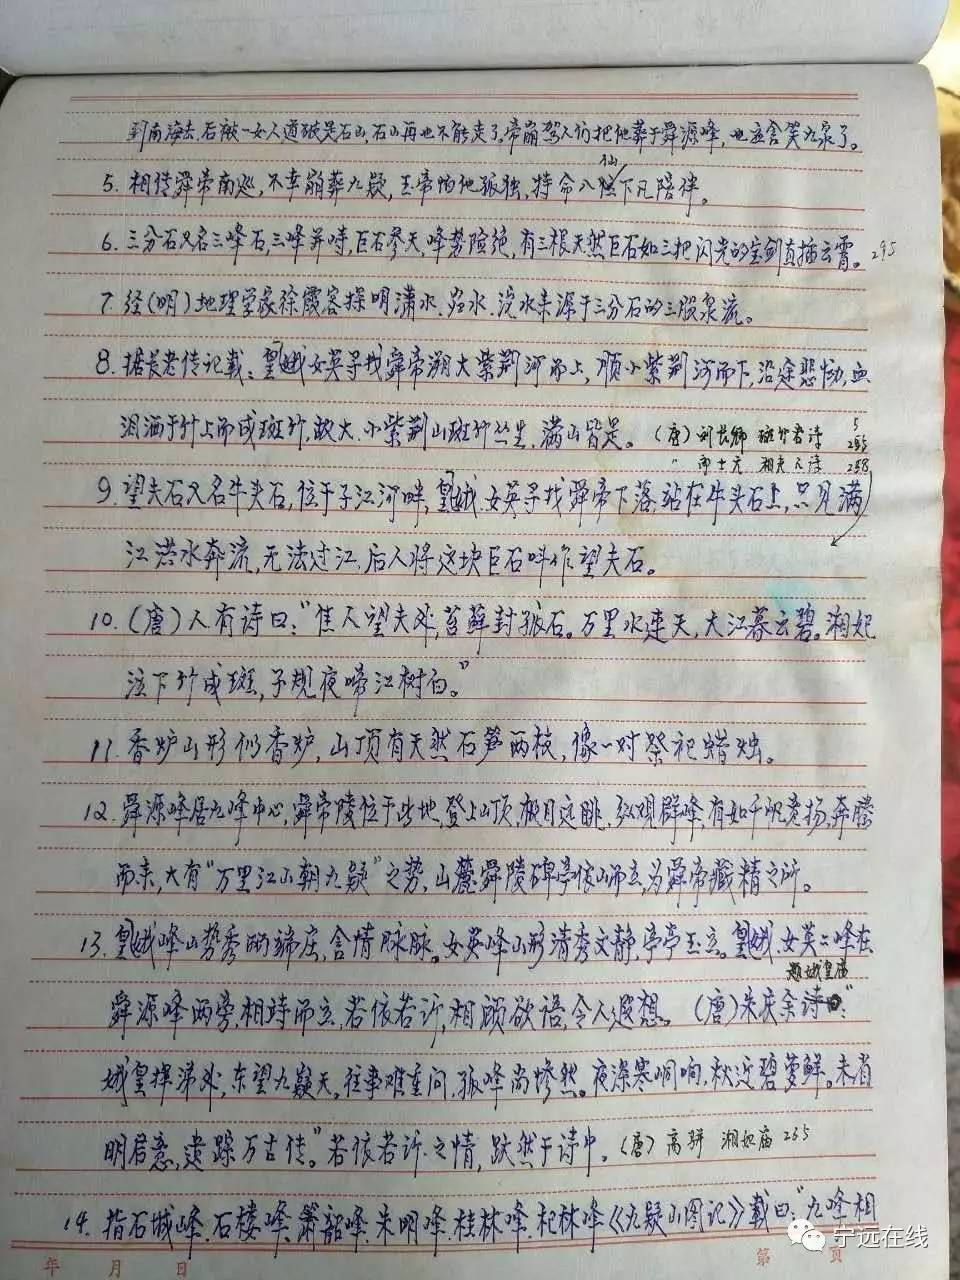 到南海去.后被一女人道破是石山,石山再也不能走了.帝崩驾人们把他葬于舜源峰,也应含笑九泉了。
仙
5. 相传舜帝南巡,不幸崩葬九疑,玉帝怕他孤独,特命八 下凡陪伴。
6. 三分石又名三峰石,三峰并峙,巨石参天,峰势险绝,有三根天然巨石如三把闪光的宝剑直插云霄。295
7. 经(明)地理学家徐霞客探明潇水.岿水.沲水来源于三分石的三股泉流。
8. 据长老传记载:皇娥女英寻找舜帝溯大紫荆河而上,顺小紫荆河而下,沿途悲恸,血
泪洒于竹上而成斑竹,故大.小紫荆山斑竹丛生,满山皆是。(唐)刘长卿 斑竹 诗 255
〃 郎士元 湘夫人诗 258
9. 望夫石又名牛头石,位于子江河畔,皇娥.女英寻找舜帝下落,站在牛头石上,只见满
江洪水奔流,无法过江.后人将这块巨石叫作望夫石。
10. (唐)人有诗曰:"佳人望夫处,苔藓封孤石。万里水连天,大江暮云碧。湘妃
泣下竹成斑,子规夜啼江树白。"
11. 香炉山形似香炉,山顶有天然石笋两枝,像一对祭祀蜡烛。
12. 舜源峰居九峰中心,舜帝陵位于此地,登上山顶,极目远眺,纵观群峰,有如千帆竞扬,奔腾
而来,大有"万里江山朝九疑"之势,山麓舜陵碑亭依山而立,为舜帝藏精之所。
13. 皇娥峰山势秀丽端庄,含情脉脉。女英峰山形清秀文静,亭亭玉立。皇娥.女英二峰在
题娥皇庙
舜源峰两旁,相峙而立,若依若诉,相顾欲语,令人遐想。(唐)朱庆余诗曰:"
娥皇挥涕处,东望九疑天。往事难重问,孤峰尚惨然。夜深寒峒响,秋近碧萝鲜。未省
明君意,遗踪万古传。"若依若诉之情,跃然于诗中。(唐)高骈 湘妃庙 265
14. 指石城峰.石楼峰.箫韶峰.朱明峰.桂林峰.杞林峰《九疑山图记》载曰:"九峰相
年 月 日 第 页
宁远在线